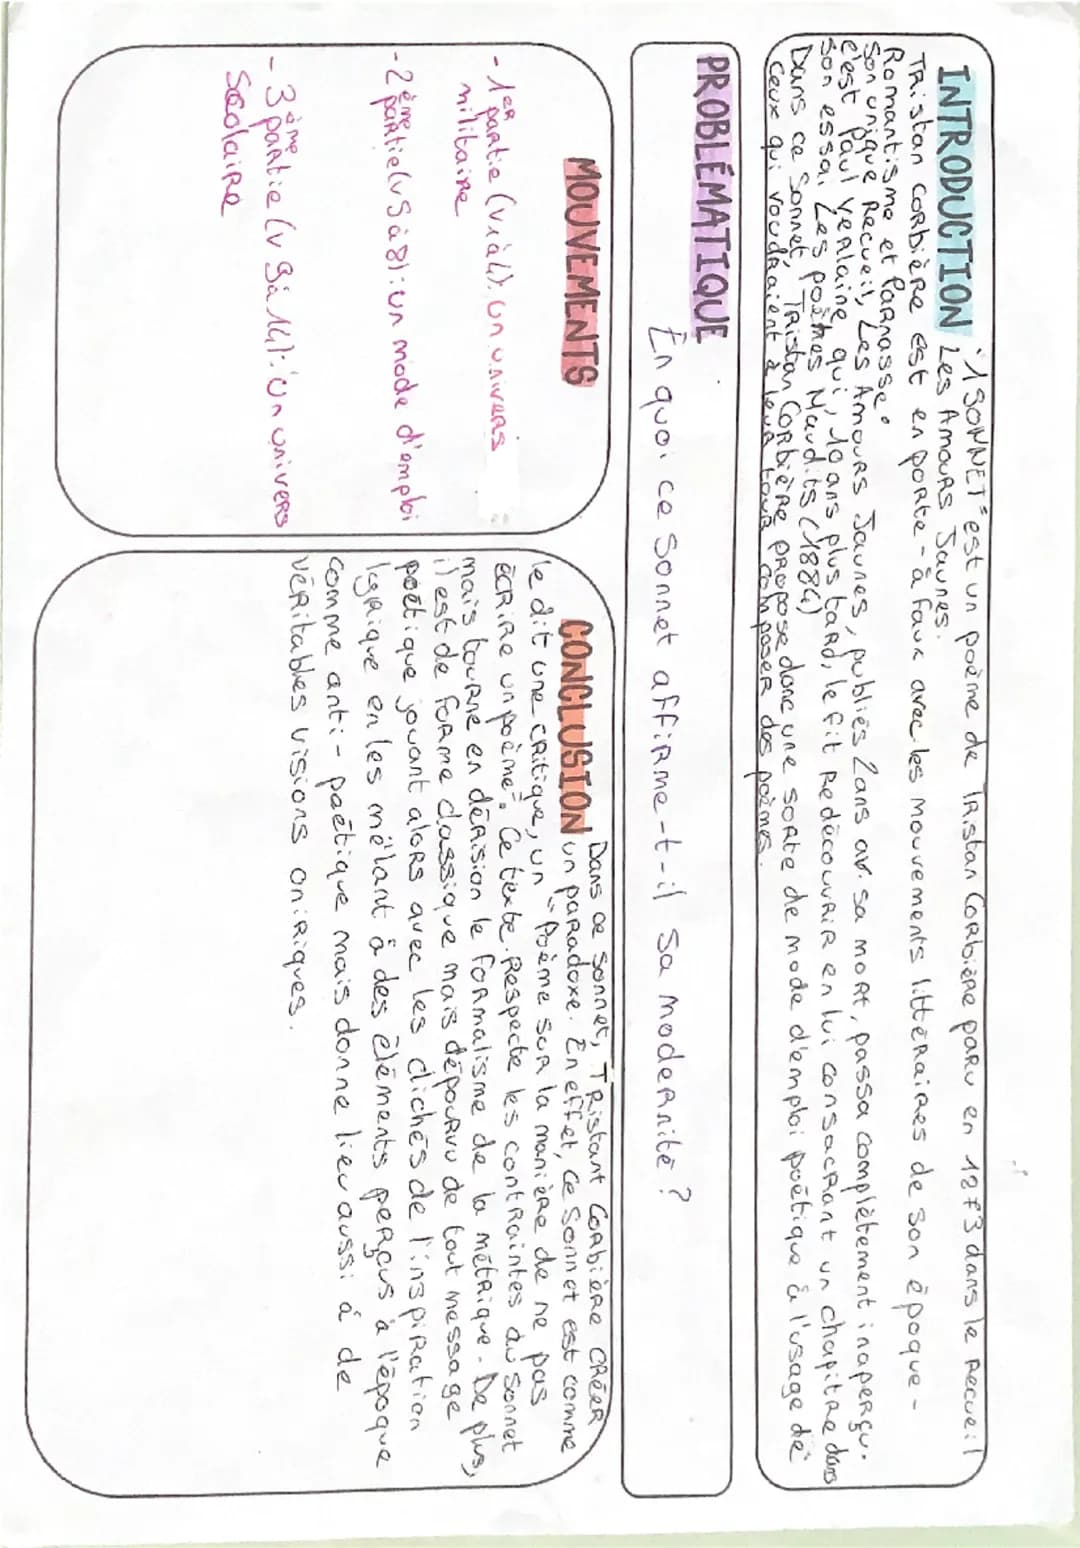 INTRODUCTION "1 SONNET" est un poème de Tristan Corbière paru en 1873 dans le recueil
Les Amours Jaunes.
Tristan Corbière est en porte-à faux avec les mouvements littéraires de son époque -
Romantisme et Parnasse.
Son unique recueil, Les Amours Jaunes, publiés 2 ans av. sa mort, passa complètement inaperçu.
C'est Paul Verlaine, qui, 10 ans plus tard, le fit redécouvrir en lui consacrant un chapitre dans
son essai Les poètes Maudits (1884)
Dans ce sonnet, Tristan Corbière propose donc une sorte de mode d'emploi poétique à l'usage de
ceux qui voudraient à leur tour composer des poèmes.
PROBLÉMATIQUE
En quoi ce sonnet affirme-t-il sa modernité ?
MOUVEMENTS
- 1er partie (v1à4): un univers
militaire
- 2ème partie (v5à8): un mode d'emploi
- 3ème partie (v9à14): un univers
Scolaire
CONCLUSION Dans ce sonnet, Tristant Corbière créer
un paradoxe. En effet, ce sonnet est comme
le dit une critique, un "Poème sur la manière de ne pas
écrire un poème". Ce texte respecte les contraintes du sonnet
mais tourne en dérision le formalisme de la métrique. De plus,
il est de forme classique mais dépourvu de tout message
poétique jouant alors avec les clichés de l'inspiration
lyrique en les mêlant à des éléments perçus à l'époque
comme anti-poétique mais donne lieu aussi à de
véritables visions oniriques.